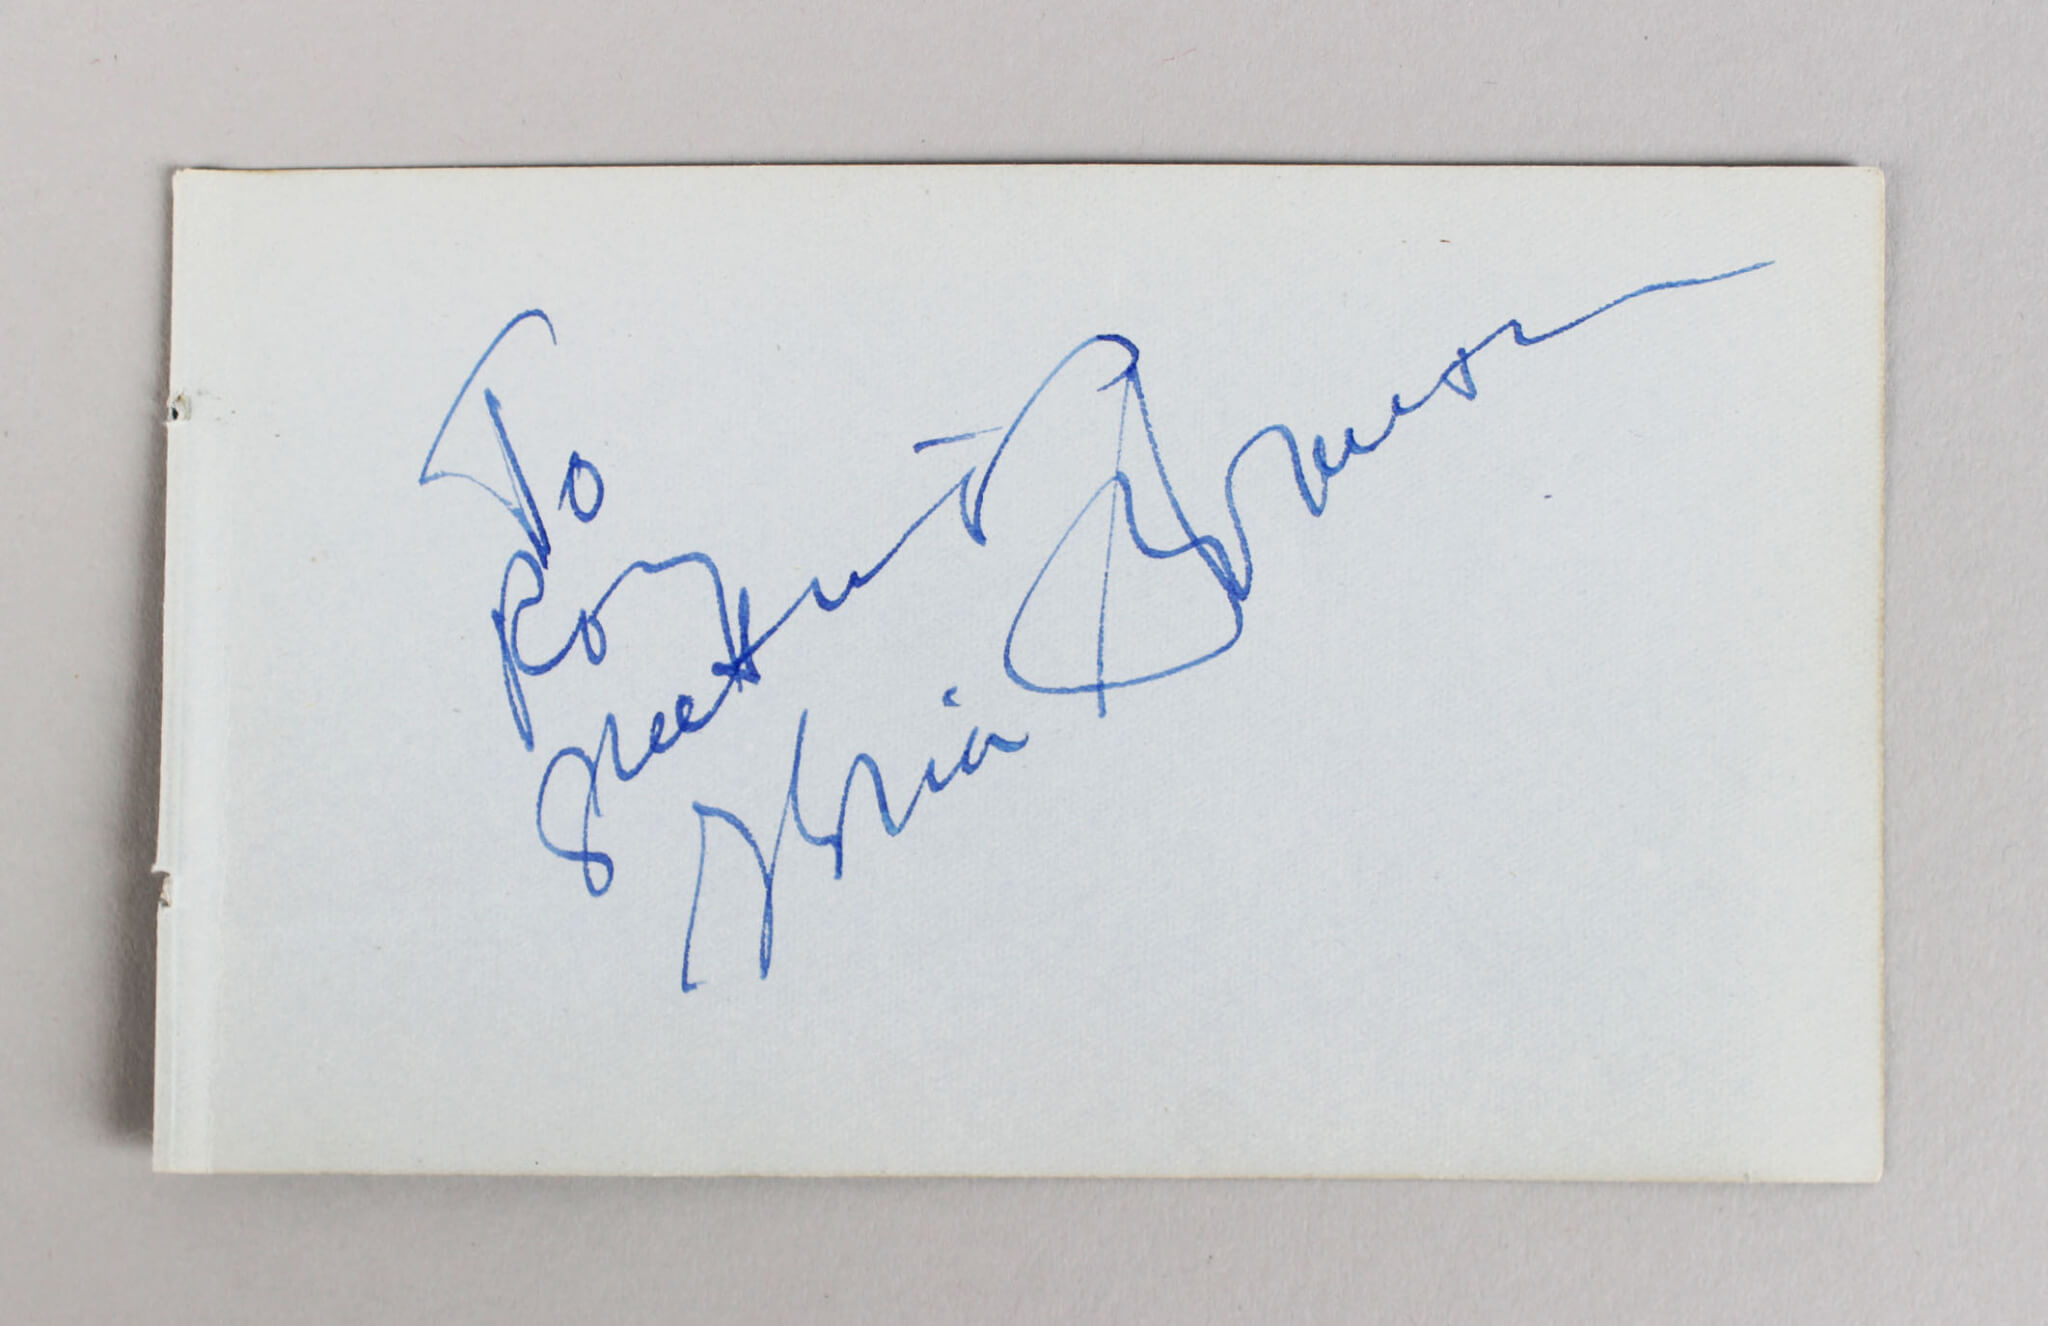 To
Ron
Greetings
Gloria Swanson